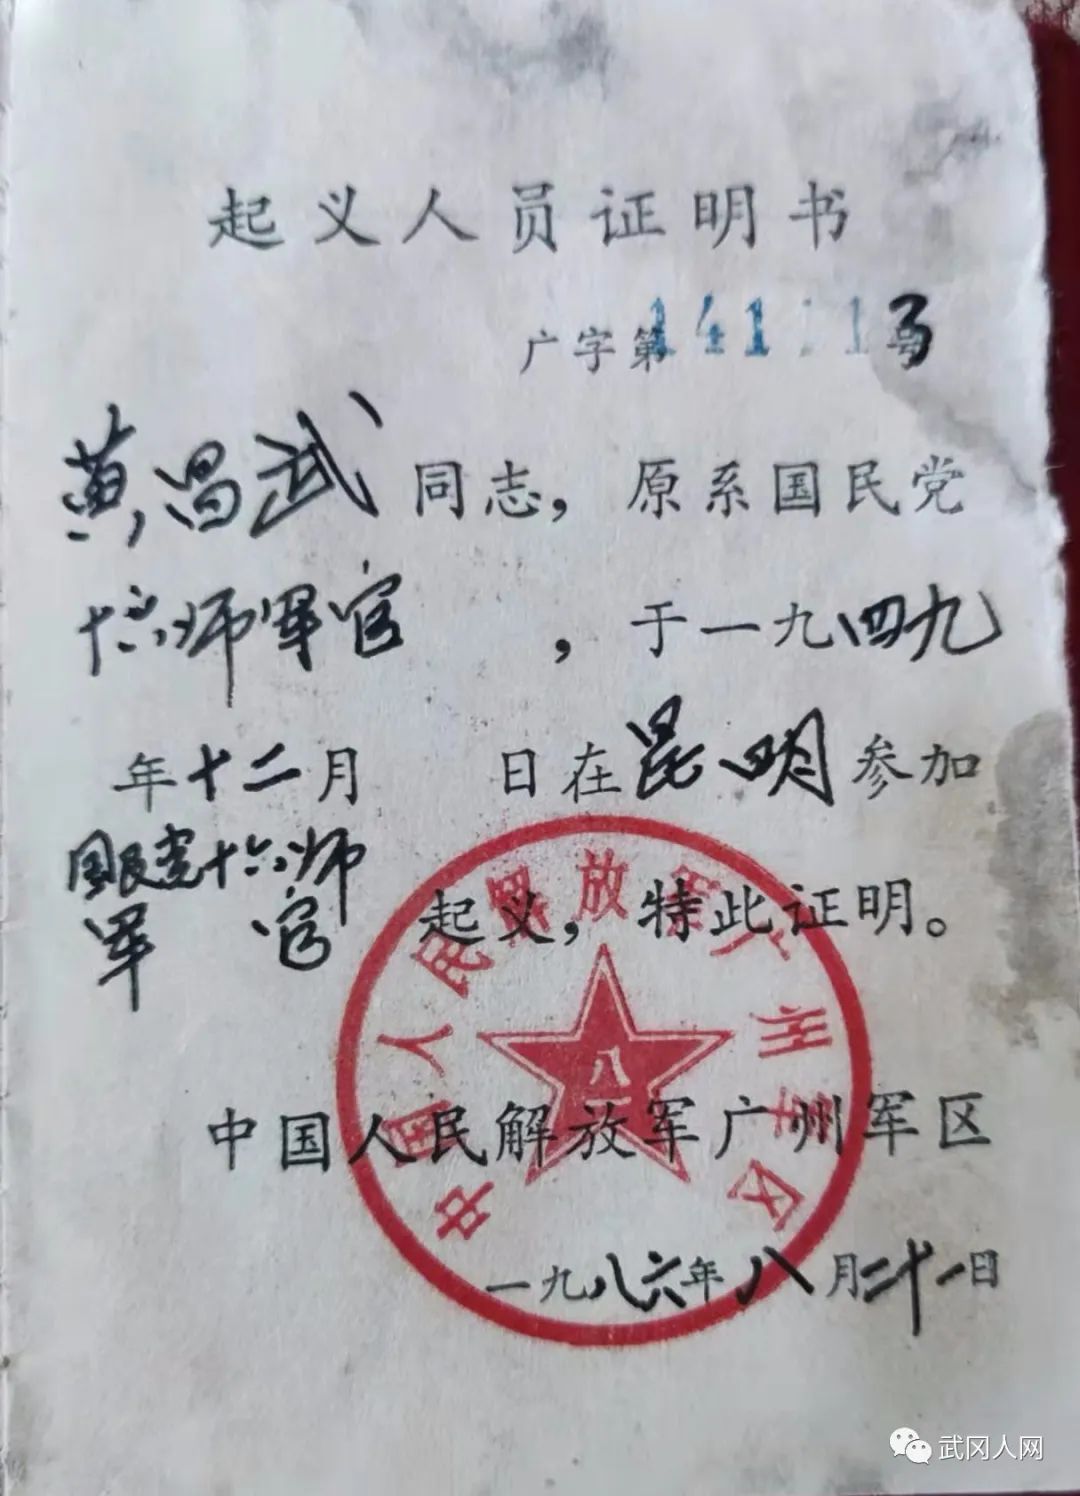 起义人员证明书
广字第141 1号
黄昌武同志，原系国民党
十六师军官，于一九四九
年十二月 日在昆明参加
国民党十六师
军官起义，特此证明。
中国人民解放军广州军区
中国人民解放军广州军区
八一
一九八六年八月二十一日
武冈人网